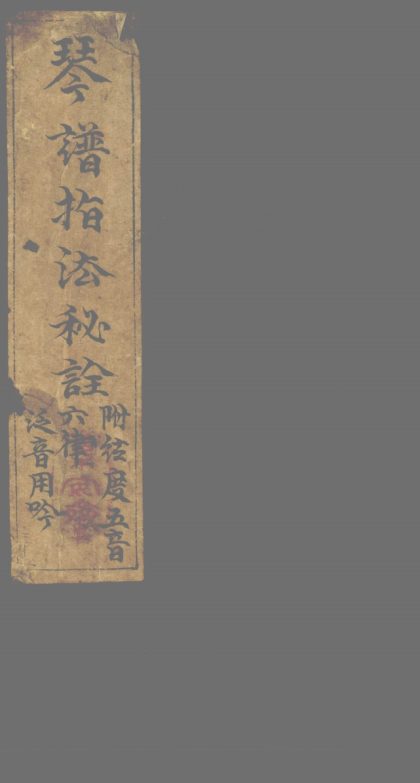 琴譜指法秘詮
附絃度五音
六律
泛音用吟